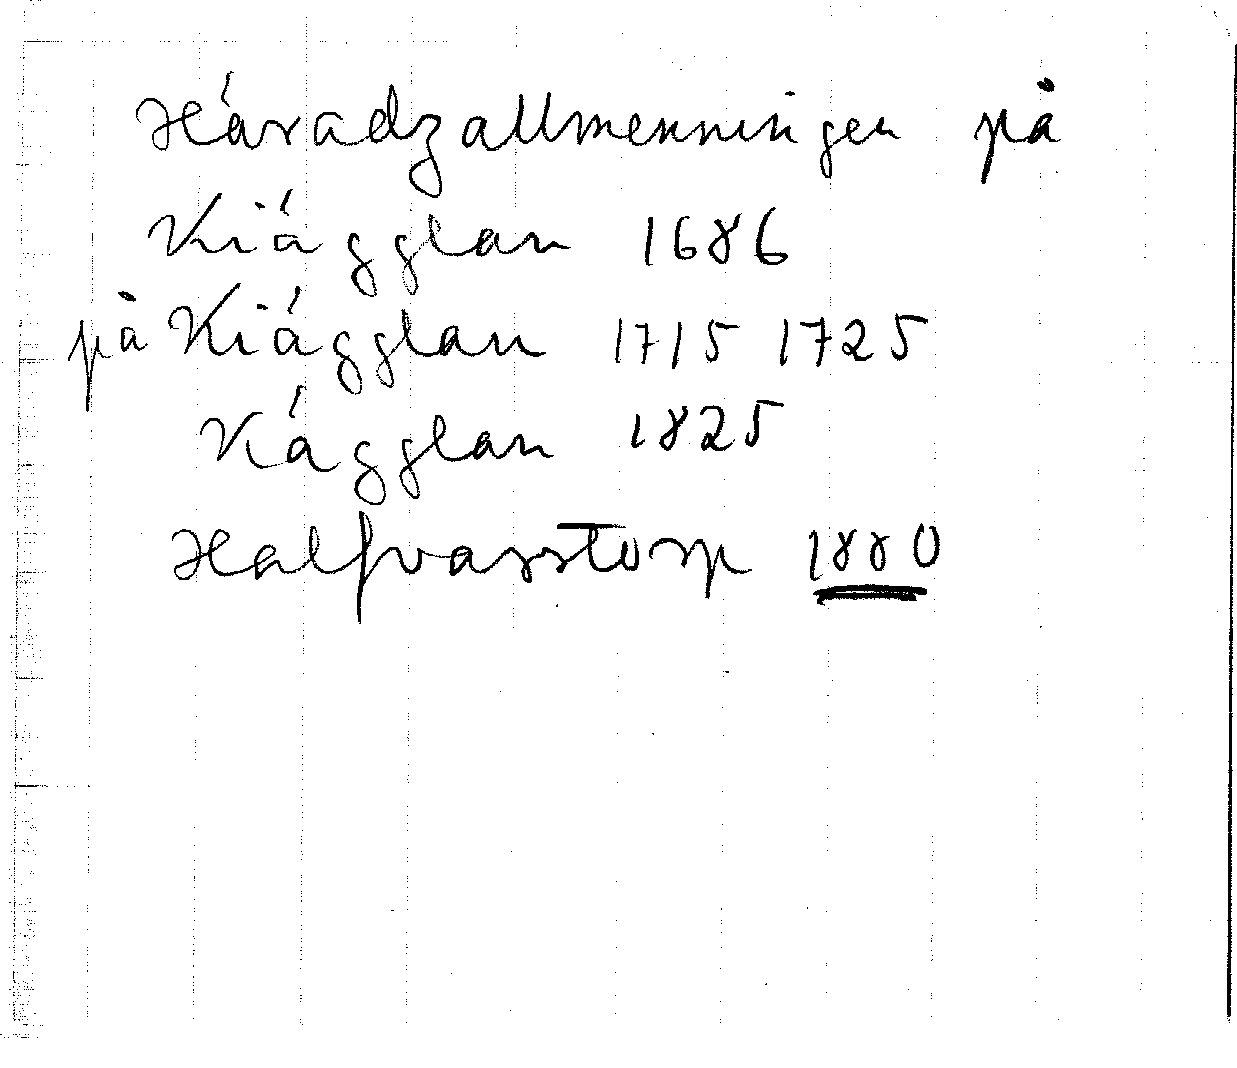 Háradzallmenningen på
Kiágglan 1686
på Kiágglan 1715 1725
Kágglan 1825
Halfvarstorp 1880